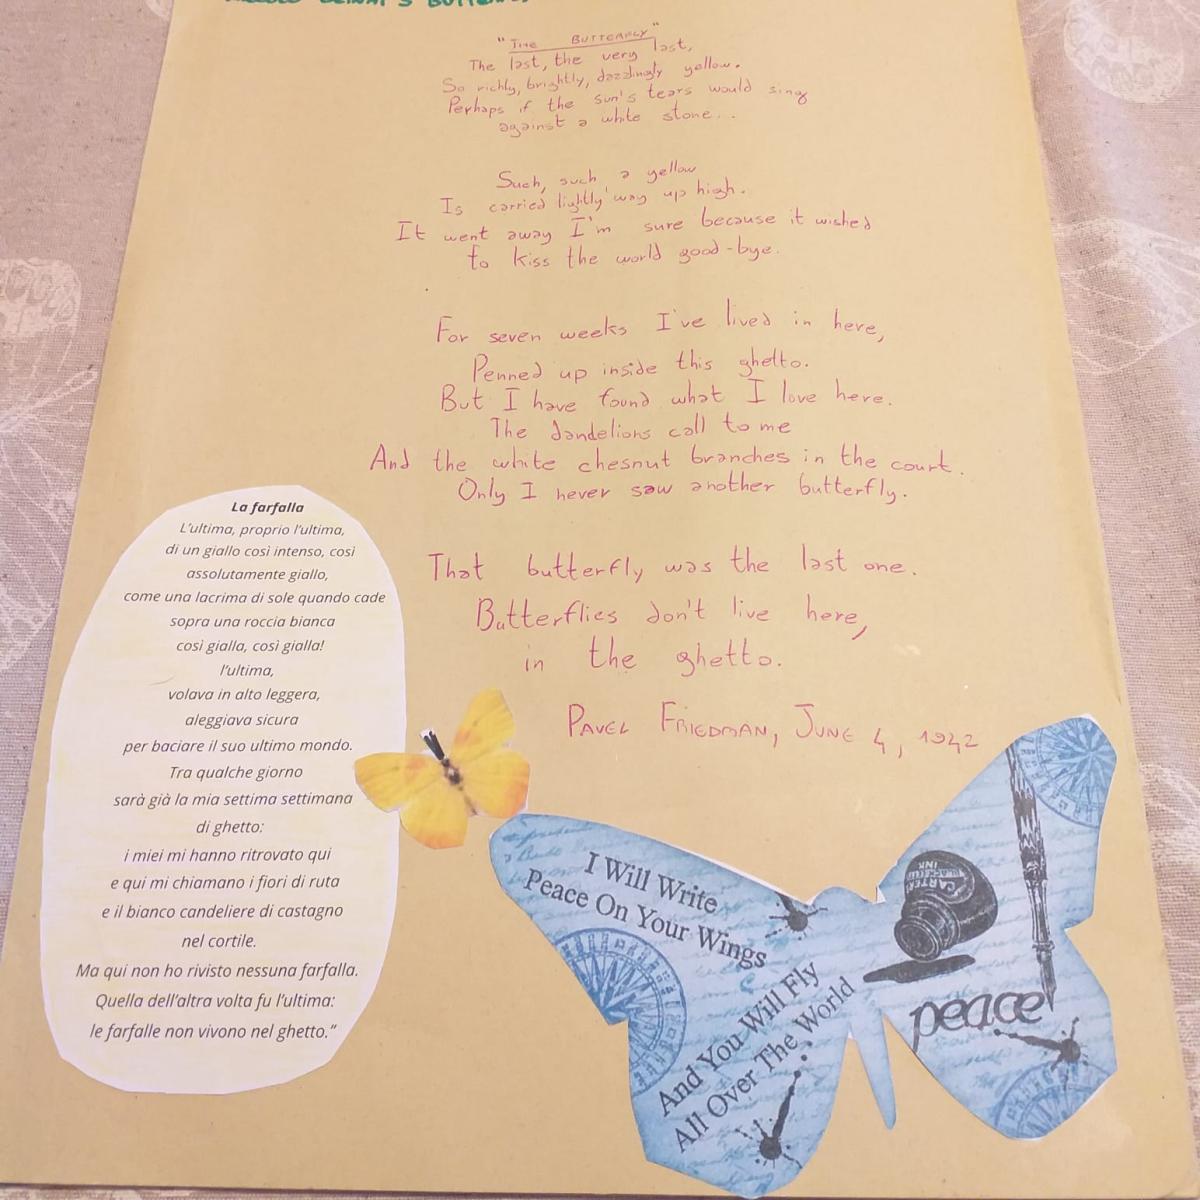 "THE BUTTERFLY"
The last, the very last,
So richly, brightly, dazzlingly yellow.
Perhaps if the sun's tears would sing
against a white stone...
Such, such a yellow
Is carried lightly 'way up high.
It went away I'm sure because it wished
to kiss the world good-bye.
For seven weeks I've lived in here,
Penned up inside this ghetto.
But I have found what I love here.
The dandelions call to me
And the white chesnut branches in the court.
Only I never saw another butterfly.
That butterfly was the last one.
Butterflies don't live here,
in the ghetto.
PAVEL FRIEDMAN, JUNE 4, 1942
La farfalla
L'ultima, proprio l'ultima,
di un giallo così intenso, così
assolutamente giallo,
come una lacrima di sole quando cade
sopra una roccia bianca
così gialla, così gialla!
l'ultima,
volava in alto leggera,
aleggiava sicura
per baciare il suo ultimo mondo.
Tra qualche giorno
sarà già la mia settima settimana
di ghetto:
i miei mi hanno ritrovato qui
e qui mi chiamano i fiori di ruta
e il bianco candeliere di castagno
nel cortile.
Ma qui non ho rivisto nessuna farfalla.
Quella dell'altra volta fu l'ultima:
le farfalle non vivono nel ghetto."
I Will Write
Peace On Your Wings
And You Will Fly
All Over The World
INK
peace